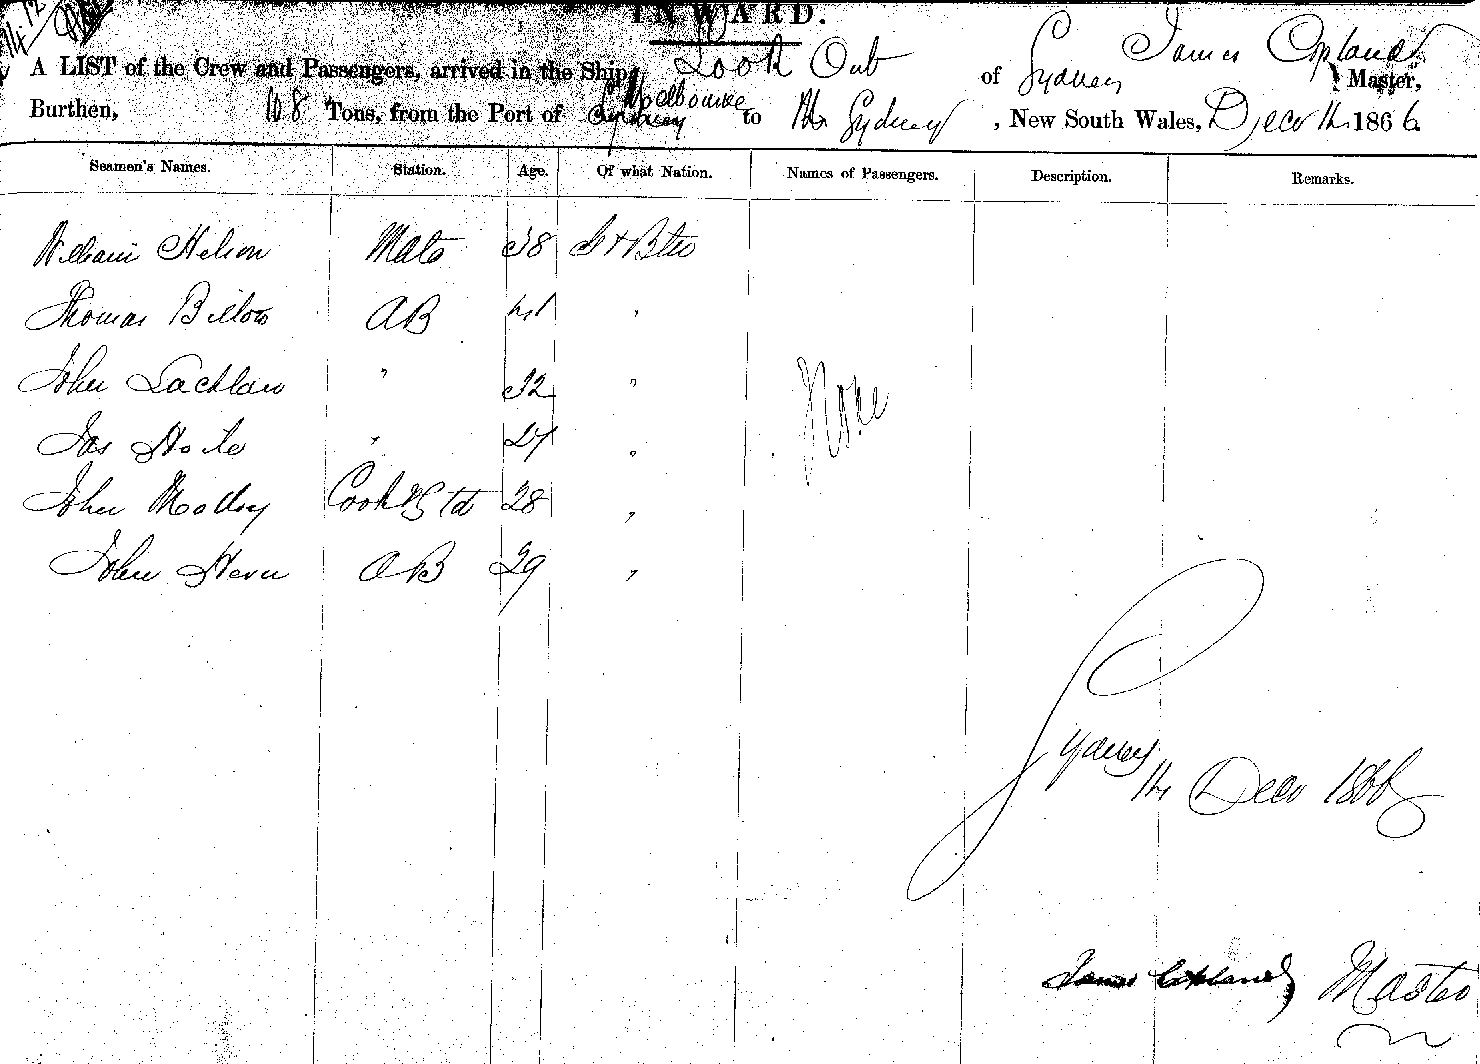 INWARD.
A LIST of the Crew and Passengers, arrived in the Ship Look Out of Sydney James Copland Master,
Burthen, 108 Tons, from the Port of Melbourne to Sydney, New South Wales, Decr 14 1866
Seamen's Names. Station. Age. Of what Nation. Names of Passengers. Description. Remarks.
William Nelson Mate 38 Gt Btn
Thomas AB 41 "
John Lachlan " 32 "
Jas "
John Cook & Std 28 "
John AB 29 "
None
Sydney
14 Decr 1866
James Copland Master